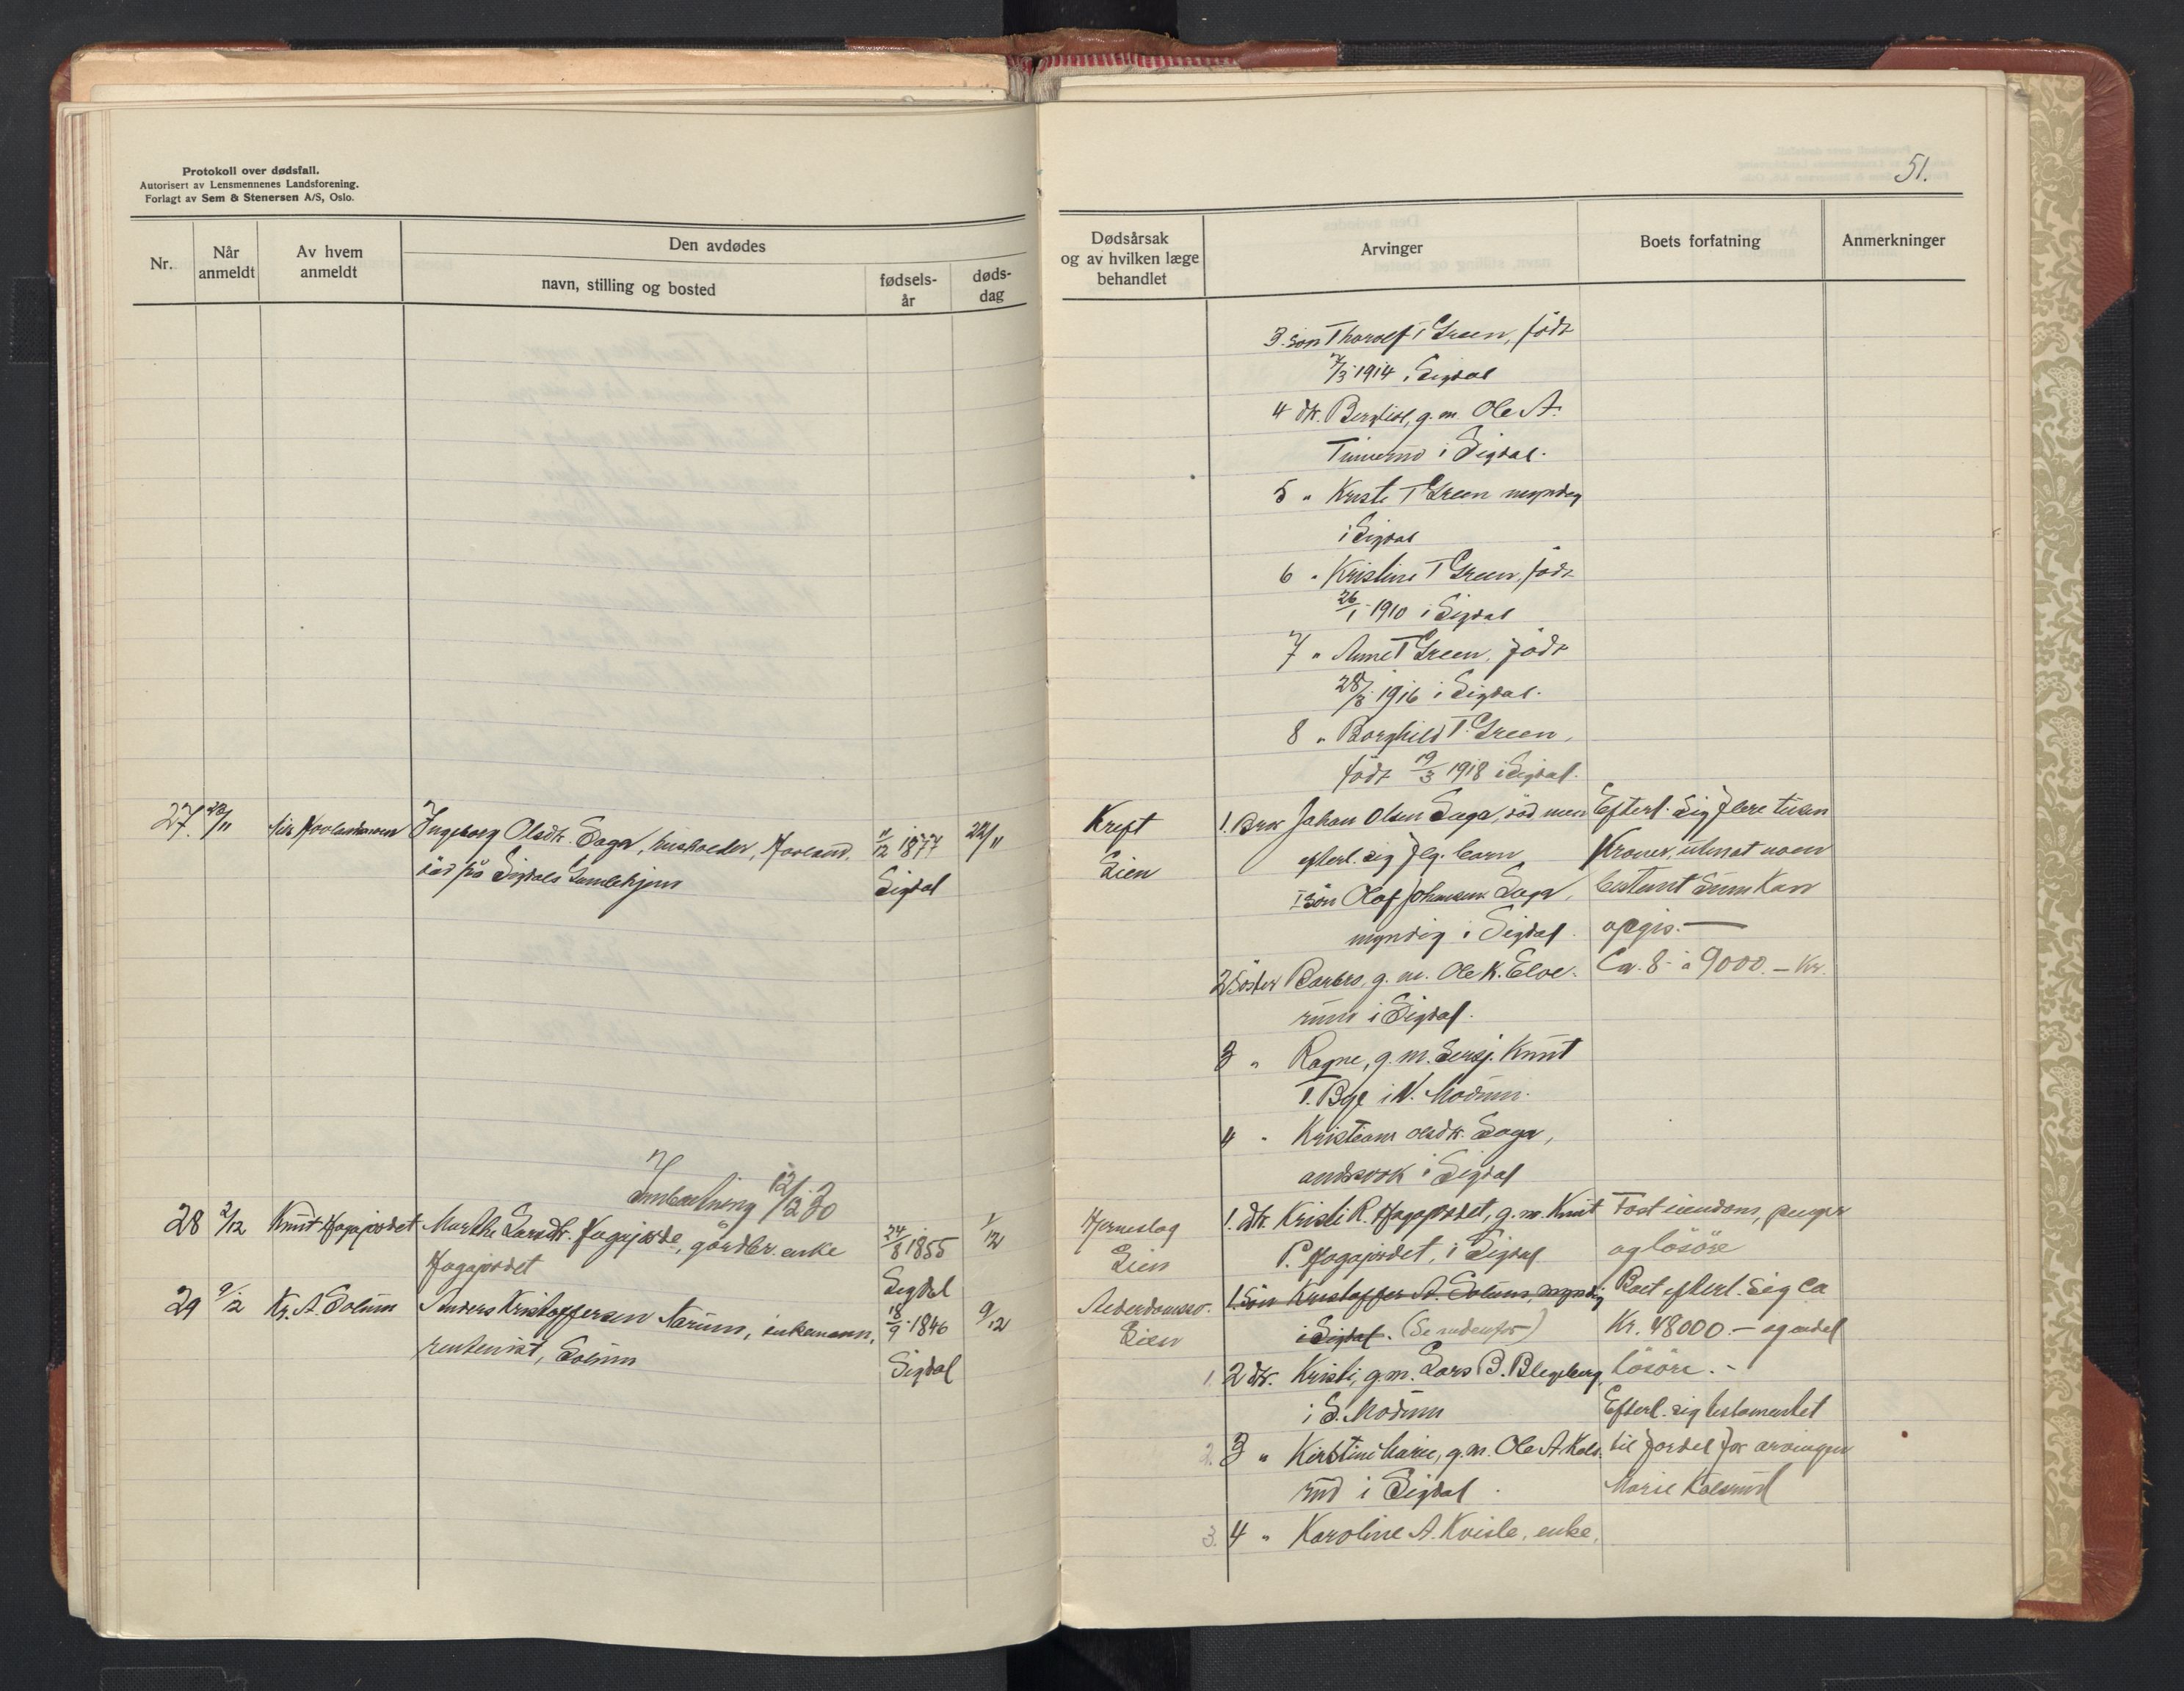 Protokoll over dødsfall.
Autorisert av Lensmennenes Landsforening.
Forlagt av Sem & Stenersen A/S, Oslo.
51.
Nr.
Når
anmeldt
Av hvem
anmeldt
Den avdødes
navn, stilling og bosted
fødsels-
år
døds-
dag
Dødsårsak
og av hvilken læge
behandlet
Arvinger
Boets forfatning
Anmerkninger
3. sön Tharolf T Green, födt
7/3 1914 i Sigdal
4 dtr. Bergliot, g. m. Ole A.
i Sigdal.
5 " Kristi T Green myndig
i Sigdal
6 " Kristine T Green, födt
26/1 1910 i Sigdal
7 " Anne T Green, födt
28/8 1916 i Sigdal.
8 " Borghild T. Green,
födt 19/3 1918 i Sigdal.
27. /11
Ingeborg Olsdtr. Saga,
på Sigdals Gamlehjem
11/12 1877
Sigdal
22/11
Kreft
Lien
1. Bror Johan Olsen Saga, död men
efterl. sig flg. barn
I sön Olaf Johansen Saga,
myndig i Sigdal.
2 Söster Barbro, g. m. Ole K. Elve-
rum i Sigdal.
3 " Ragne, g. m. Sersj. Knut
T. Bye i N. Modum.
4 " Kristiane Olsdtr. Saga,
i Sigdal
Efterl. sig flere tusen
Kroner, uten at noen
bestemt Sum kan
opgis. —
Ca. 8 - à 9000. — Kr.
Innberetning 12/12 30
28 2/12 Knut Hagajordet Marthe Larsdtr. Hagajorde, gårdbr. enke
Hagajordet
24/8 1855
Sigdal
1/12
Hjerneslag
Lien
1. dtr. Kristi R. Hagajordet, g. m. Knut
P. Hagajordet, i Sigdal
Fast eiendom, penger
og lösöre
29 9/12 Kr. A. Solum Anders Kristoffersen Narum, enkemann,
rentenist, Solum
18/9 1846
Sigdal
9/12
Alderdomssv.
Lien
1. Sön Kristoffer A. Solum, myndig
i Sigdal. (Se nedenfor)
1. 2 dtr. Kristi, g. m. Lars B. Blegeberg
i S. Modum
2. 3 " Kirstine Marie, g. m. Ole A Kols-
rud i Sigdal.
3. 4 " Karoline A. Kvisle, enke,
Boet efterl. sig ca
Kr. 48000. — og endel
lösöre. -
Efterl. sig testamentet
til fordel for arvingen
Marie Kolsrud